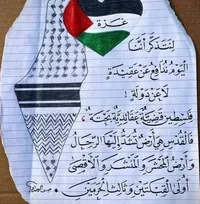 غزة
لنتذكر أننا
اليوم ندافع عن عقيدة
لا عن دولة !
فلسطين قضية عقائدية بحتة ،
فالقدس هي أرض تشد إليها الرحال
و أرض المحشر و المنشر و الأقصى
أولى القبلتين و ثالث الحرمين .